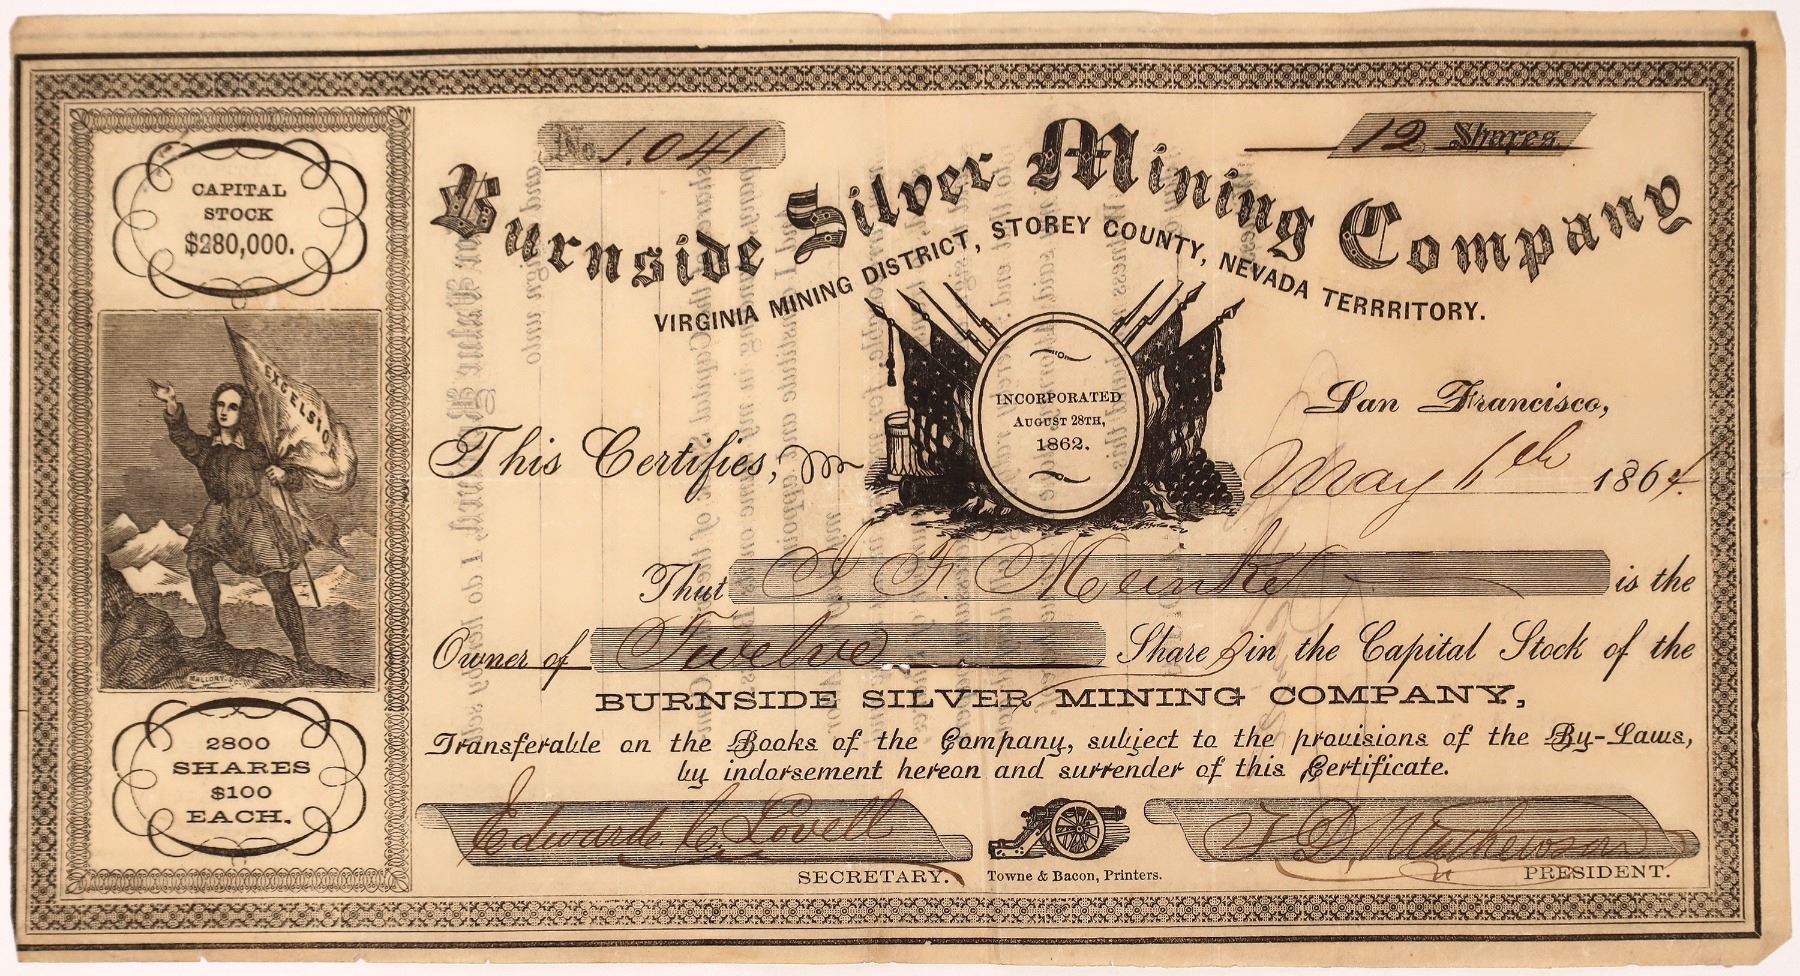 No. 1.041
12 Shares.
Burnside Silver Mining Company
VIRGINIA MINING DISTRICT, STOREY COUNTY, NEVADA TERRRITORY.
CAPITAL
STOCK
$280,000.
EXCELSIOR
MALLORY
2800
SHARES
$100
EACH.
INCORPORATED
AUGUST 28TH,
1862.
San Francisco,
May 6th 1864.
This Certifies,
That J. F. Meinke is the
Owner of Twelve Shares in the Capital Stock of the
BURNSIDE SILVER MINING COMPANY,
Transferable on the Books of the Company, subject to the provisions of the By-Laws,
by indorsement hereon and surrender of this Certificate.
Edward C. Lovell
SECRETARY.
Towne & Bacon, Printers.
PRESIDENT.